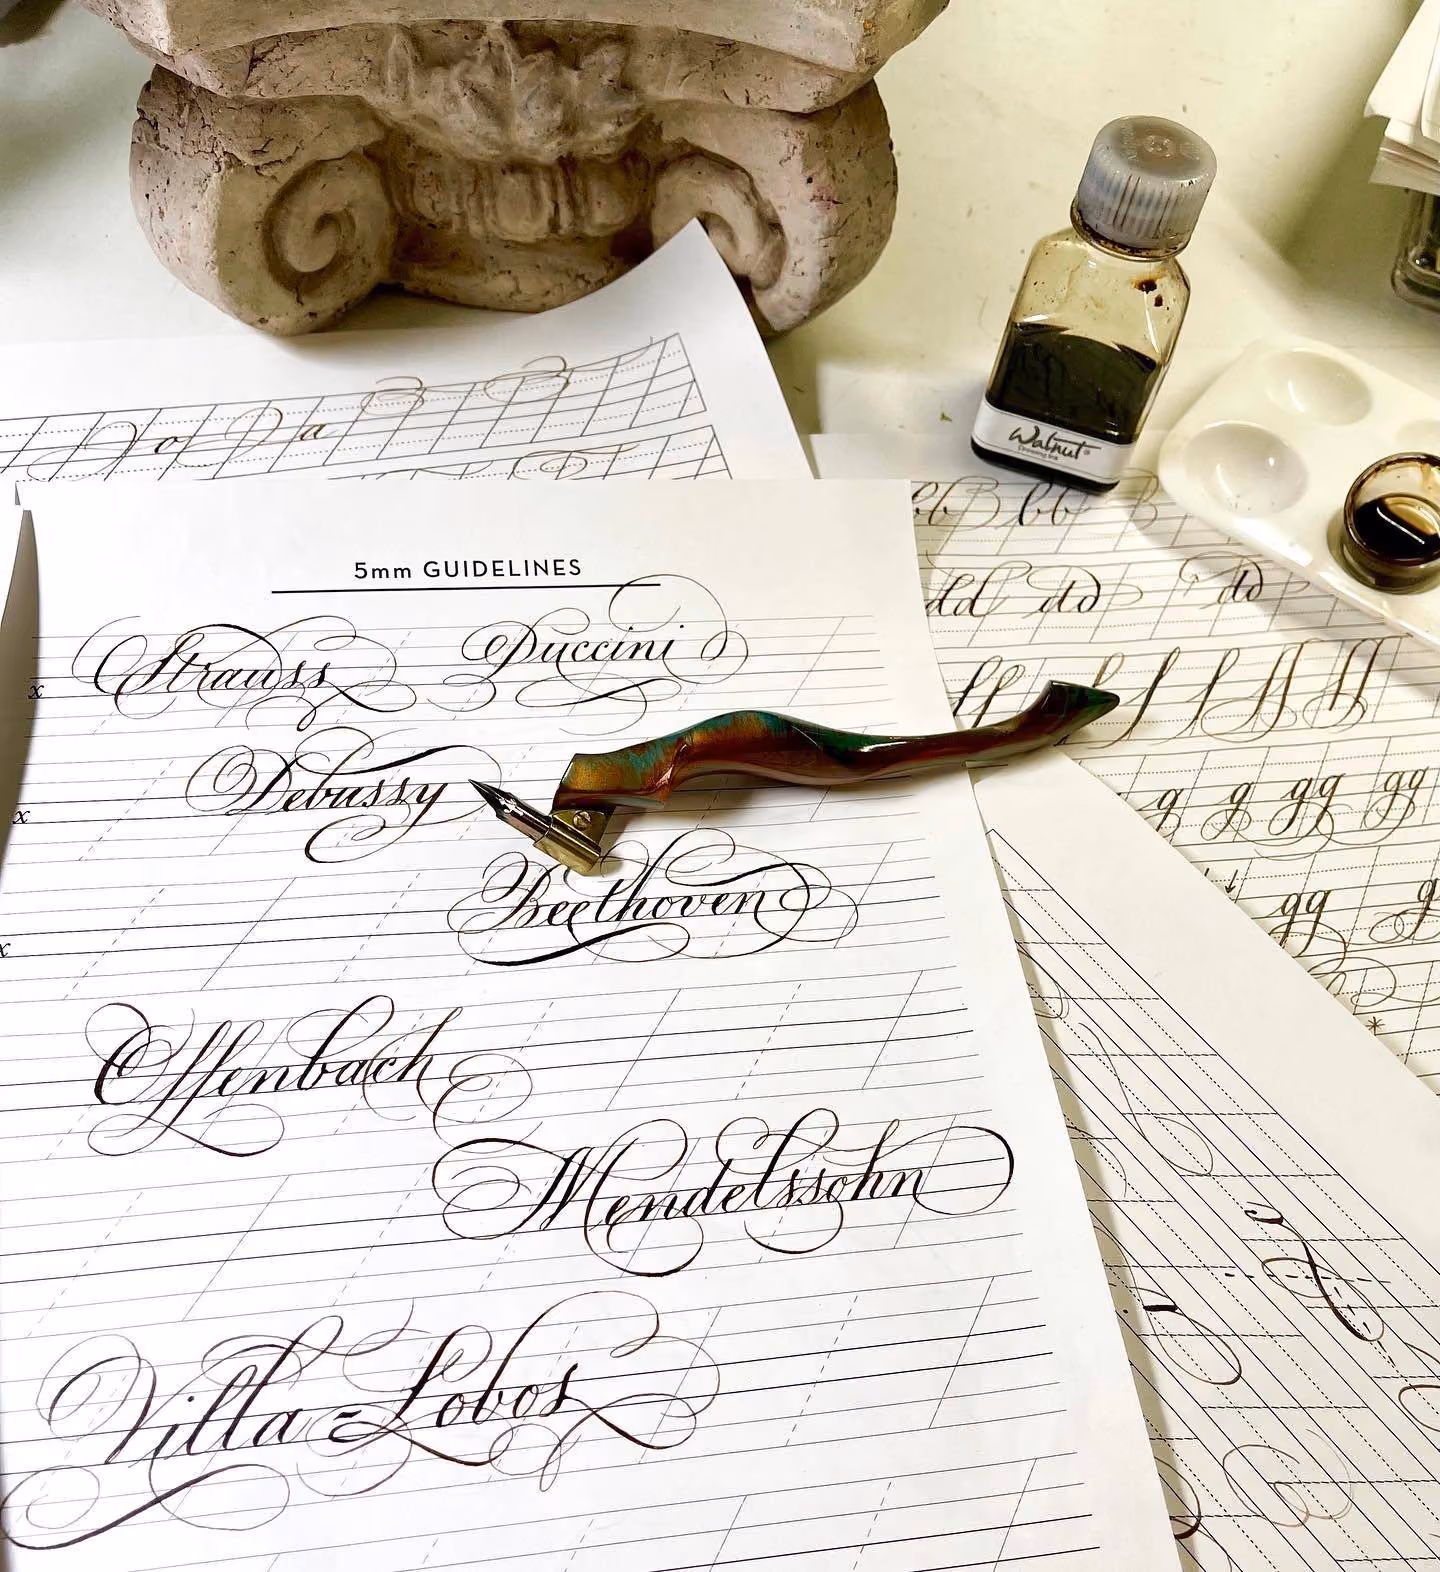 5mm GUIDELINES
Strauss Puccini
x
Debussy
x
Beethoven
x
Offenbach
Mendelssohn
Villa=Lobos
Walnut
Drawing Ink
bb B bb B
dd dd dd
ff f f f ff ff
g g gg gg
gg g